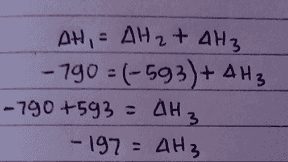 ΔH₁ = ΔH₂ + ΔH₃
-790 = (-593) + ΔH₃
-790 + 593 = ΔH₃
-197 = ΔH₃